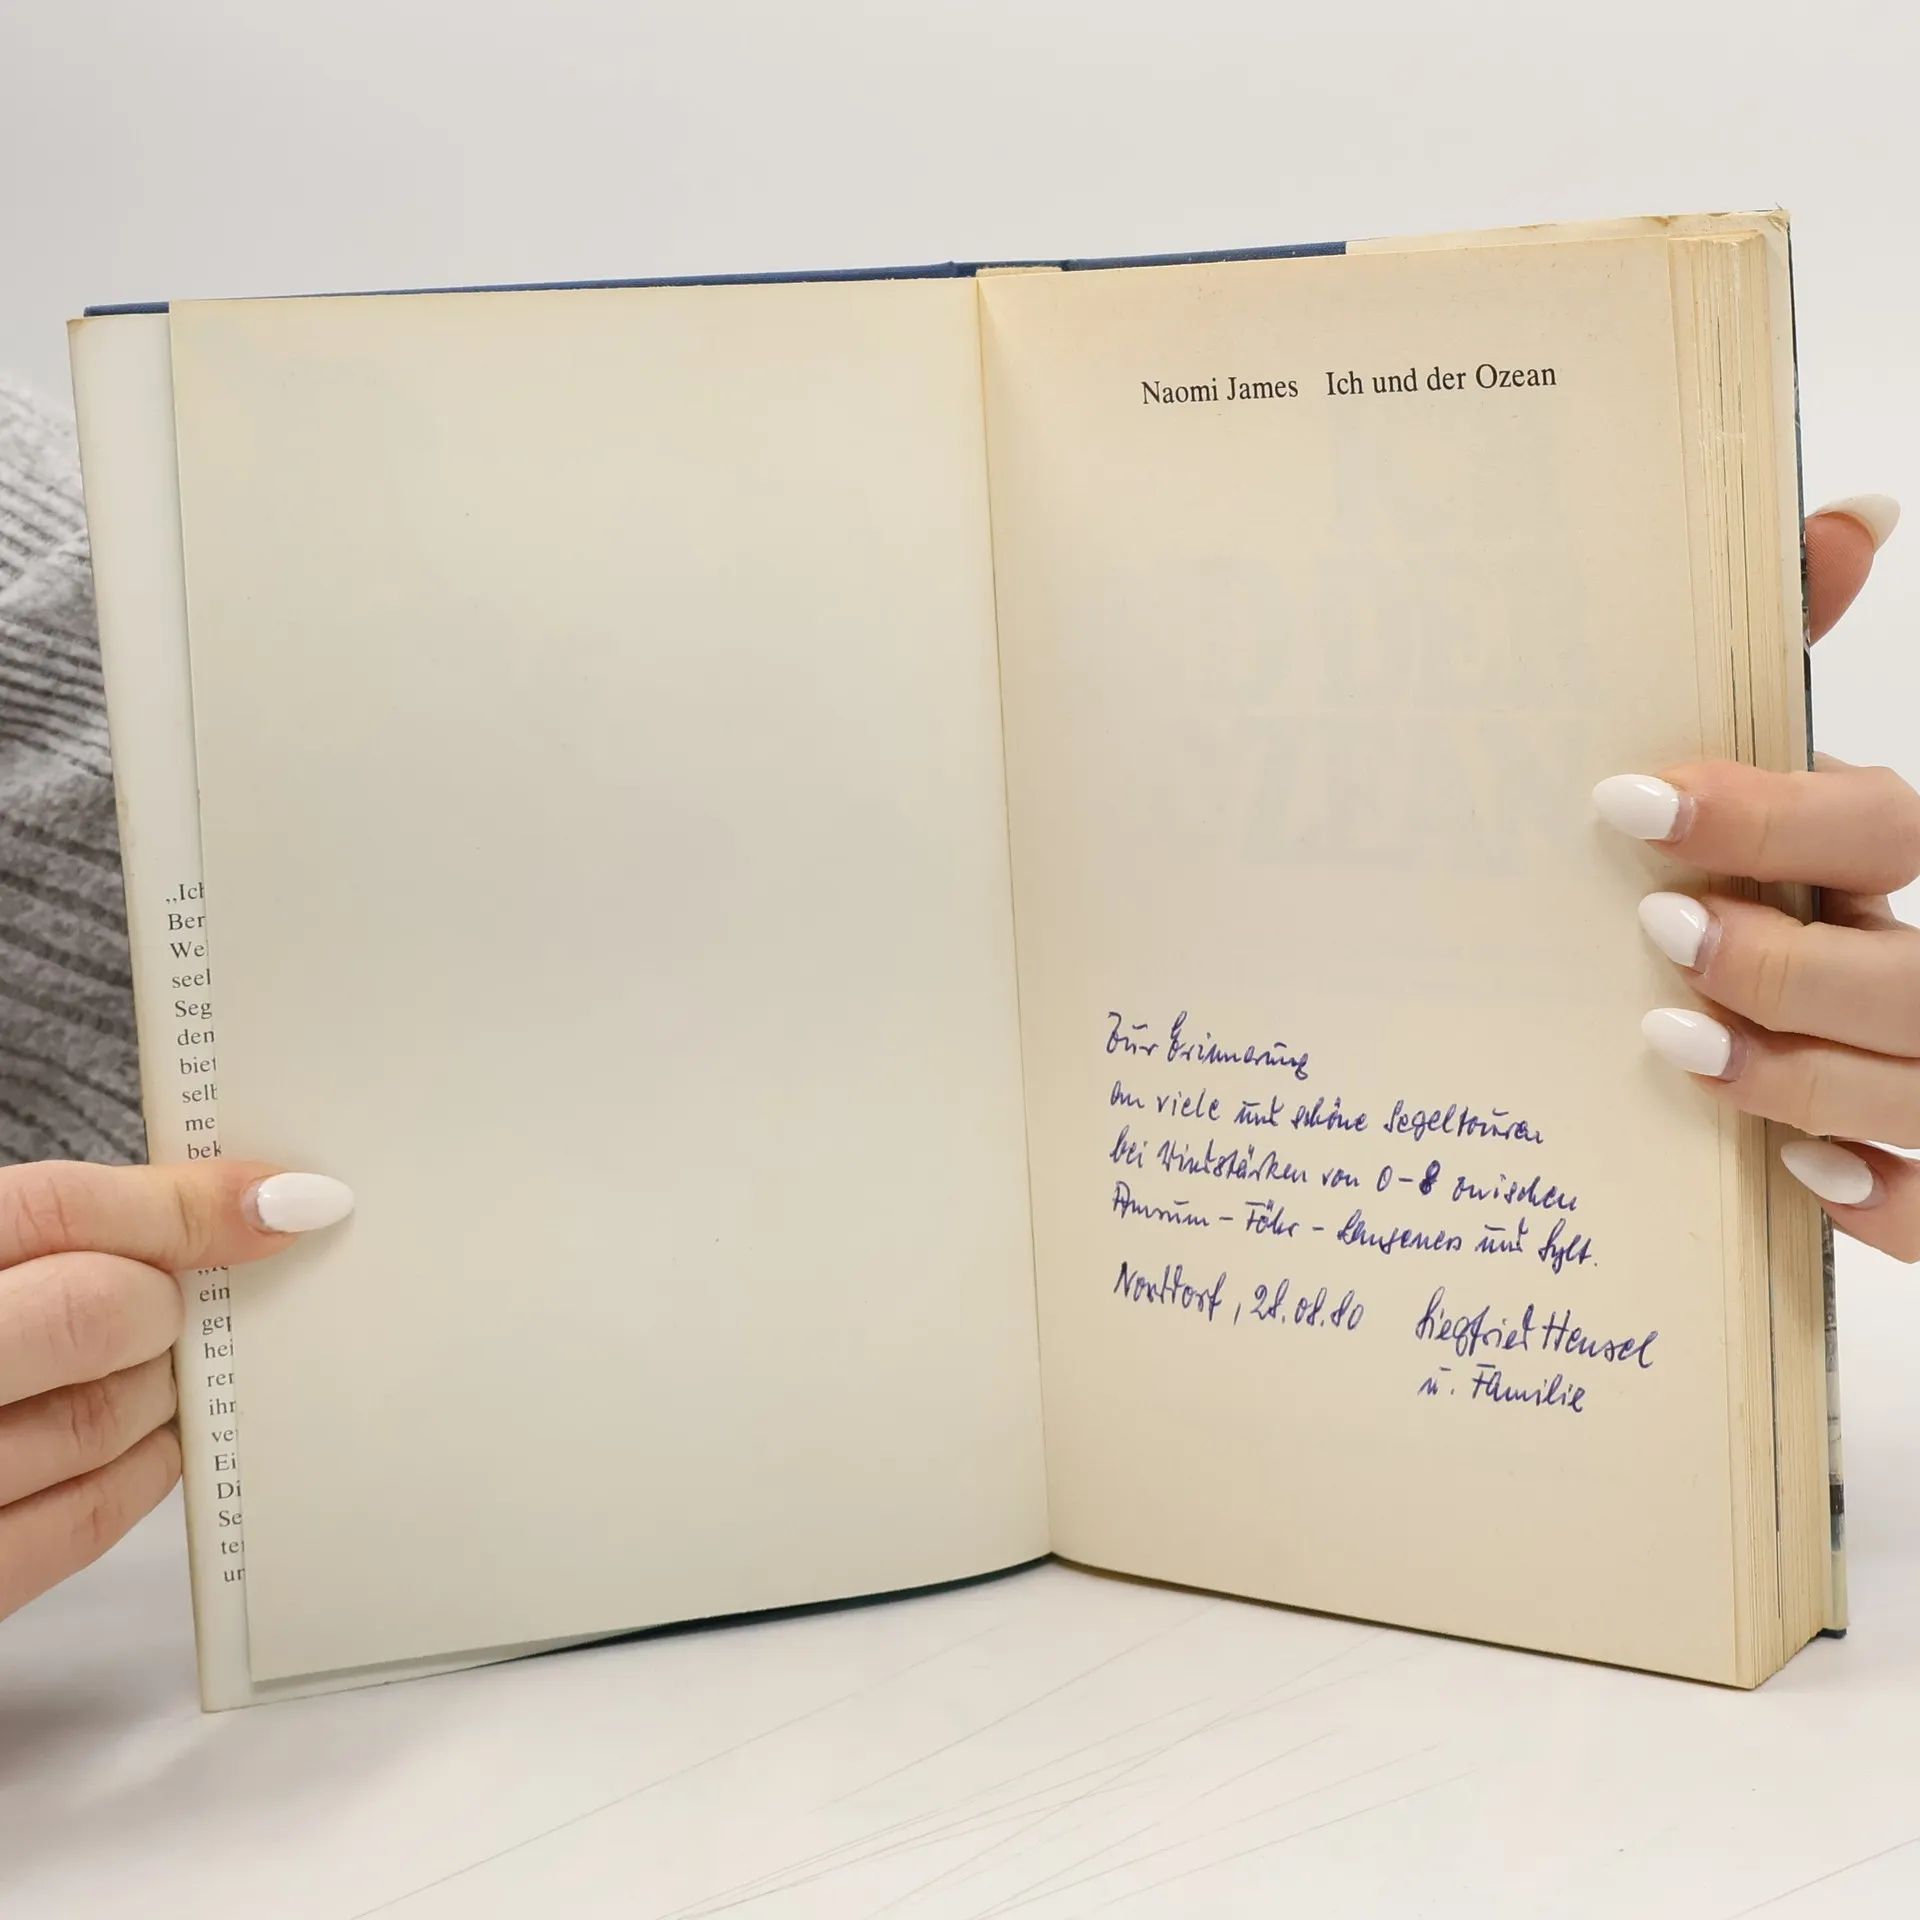 „Ich
Ber
We
seel
Seg
den
biet
selb
me
bek
ein
gep
hei
ren
ihr
ve
Ei
Di
Se
te
un
Naomi James Ich und der Ozean
Zur Erinnerung
an viele und schöne Segeltouren
bei Windstärken von 0–8 zwischen
Amrum – Föhr – Langeness und Sylt.
Norddorf, 28.08.80 Siegfried Hensel
u. Familie